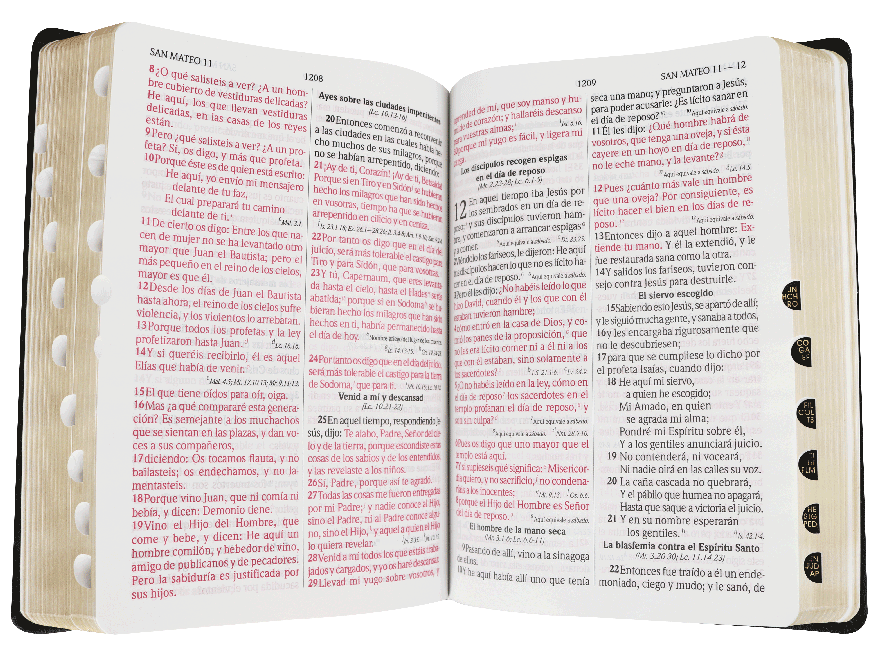 SAN MATEO 11
1208
8¿O qué salisteis a ver? ¿A un hom-
bre cubierto de vestiduras delicadas?
He aquí, los que llevan vestiduras
delicadas, en las casas de los reyes
están.
9Pero ¿qué salisteis a ver? ¿A un pro-
feta? Sí, os digo, y más que profeta.
10Porque éste es de quien está escrito:
He aquí, yo envío mi mensajero
delante de tu faz,
El cual preparará tu camino
delante de ti.
Mal. 3.1.
11De cierto os digo: Entre los que na-
cen de mujer no se ha levantado otro
mayor que Juan el Bautista; pero el
más pequeño en el reino de los cielos,
mayor es que él.
12Desde los días de Juan el Bautista
hasta ahora, el reino de los cielos sufre
violencia, y los violentos lo arrebatan.
13Porque todos los profetas y la ley
profetizaron hasta Juan.
Lc. 16.16.
14Y si queréis recibirlo, él es aquel
Elías que había de venir.
Mal. 4.5; Mt. 17.10-13; Mr. 9.11-13.
15El que tiene oídos para oír, oiga.
16Mas ¿a qué compararé esta genera-
ción? Es semejante a los muchachos
que se sientan en las plazas, y dan vo-
ces a sus compañeros,
17diciendo: Os tocamos flauta, y no
bailasteis; os endechamos, y no la-
mentasteis.
18Porque vino Juan, que ni comía ni
bebía, y dicen: Demonio tiene.
19Vino el Hijo del Hombre, que
come y bebe, y dicen: He aquí un
hombre comilón, y bebedor de vino,
amigo de publicanos y de pecadores.
Pero la sabiduría es justificada por
sus hijos.
Ayes sobre las ciudades impenitentes
(Lc. 10.13-16)
20Entonces comenzó a reconvenir
a las ciudades en las cuales había he-
cho muchos de sus milagros, porque
no se habían arrepentido, diciendo:
21¡Ay de ti, Corazín! ¡Ay de ti, Betsaida!
Porque si en Tiro y en Sidón se hubieran
hecho los milagros que han sido hechos
en vosotras, tiempo ha que se hubieran
arrepentido en cilicio y en ceniza.
22Por tanto os digo que en el día del
juicio, será más tolerable el castigo para
Tiro y para Sidón, que para vosotras.
23Y tú, Capernaum, que eres levanta-
da hasta el cielo, hasta el Hades serás
abatida; porque si en Sodoma se hu-
bieran hecho los milagros que han sido
hechos en ti, habría permanecido hasta
el día de hoy.
24Por tanto os digo que en el día del juicio,
será más tolerable el castigo para la tierra
de Sodoma, que para ti.
Venid a mí y descansad
(Lc. 10.21-22)
25En aquel tiempo, respondiendo Je-
sús, dijo: Te alabo, Padre, Señor del cie-
lo y de la tierra, porque escondiste estas
cosas de los sabios y de los entendidos,
y las revelaste a los niños.
26Sí, Padre, porque así te agradó.
27Todas las cosas me fueron entregadas
por mi Padre; y nadie conoce al Hijo,
sino el Padre, ni al Padre conoce algu-
no, sino el Hijo, y aquel a quien el Hijo
lo quiera revelar.
28Venid a mí todos los que estáis traba-
jados y cargados, y yo os haré descansar.
29Llevad mi yugo sobre vosotros, y
1209
SAN MATEO 11 – 12
de mí, que soy manso y hu-
de corazón; y hallaréis descanso
vuestras almas;
Jer. 6.16.
mi yugo es fácil, y ligera mi
Los discípulos recogen espigas
en el día de reposo
(Mr. 2.23-28; Lc. 6.1-5)
12 En aquel tiempo iba Jesús por
los sembrados en un día de re-
poso; y sus discípulos tuvieron ham-
bre, y comenzaron a arrancar espigas
a comer.
Aquí equivale a sábado.
Dt. 23.25.
Viéndolo los fariseos, le dijeron: He aquí
discípulos hacen lo que no es lícito ha-
cer en el día de reposo.
Aquí equivale a sábado.
él les dijo: ¿No habéis leído lo que
hizo David, cuando él y los que con él
estaban tuvieron hambre;
cómo entró en la casa de Dios, y co-
mió los panes de la proposición, que
no les era lícito comer ni a él ni a los
que con él estaban, sino solamente a
los sacerdotes?
¿O no habéis leído en la ley, cómo en
el día de reposo los sacerdotes en el
templo profanan el día de reposo, y
son sin culpa?
Aquí equivale a sábado.
Pues os digo que uno mayor que el
templo está aquí.
si supieseis qué significa: Misericor-
dia quiero, y no sacrificio, no condena-
ríais a los inocentes;
porque el Hijo del Hombre es Señor
del día de reposo.
Aquí equivale a sábado.
El hombre de la mano seca
(Mr. 3.1-6; Lc. 6.6-11)
9Pasando de allí, vino a la sinagoga
de ellos.
10Y he aquí había allí uno que tenía
seca una mano; y preguntaron a Jesús,
para poder acusarle: ¿Es lícito sanar en
el día de reposo?
Aquí equivale a sábado.
11Él les dijo: ¿Qué hombre habrá de
vosotros, que tenga una oveja, y si ésta
cayere en un hoyo en día de reposo,
no le eche mano, y la levante?
Aquí equivale a sábado.
Lc. 14.5.
12Pues ¿cuánto más vale un hombre
que una oveja? Por consiguiente, es
lícito hacer el bien en los días de re-
poso.
Aquí equivale a sábado.
13Entonces dijo a aquel hombre: Ex-
tiende tu mano. Y él la extendió, y le
fue restaurada sana como la otra.
14Y salidos los fariseos, tuvieron con-
sejo contra Jesús para destruirle.
El siervo escogido
15Sabiendo esto Jesús, se apartó de allí;
y le siguió mucha gente, y sanaba a todos,
16y les encargaba rigurosamente que
no le descubriesen;
17para que se cumpliese lo dicho por
el profeta Isaías, cuando dijo:
18 He aquí mi siervo,
a quien he escogido;
Mi Amado, en quien
se agrada mi alma;
Pondré mi Espíritu sobre él,
Y a los gentiles anunciará juicio.
19 No contenderá, ni voceará,
Ni nadie oirá en las calles su voz.
20 La caña cascada no quebrará,
Y el pábilo que humea no apagará,
Hasta que saque a victoria el juicio.
21 Y en su nombre esperarán
los gentiles.
Is. 42.1-4.
La blasfemia contra el Espíritu Santo
(Mr. 3.20-30; Lc. 11.14-23)
22Entonces fue traído a él un ende-
moniado, ciego y mudo; y le sanó, de